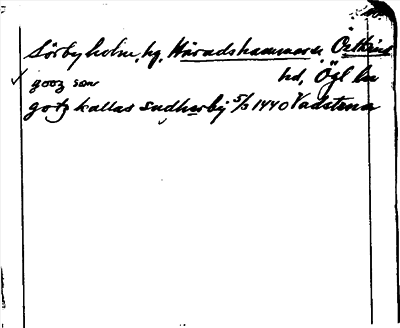 Sörbyholm, hg, Häradshammars Östkinds
hd, Ögl ln
gooz som
gotz kallas sudherby 5/3 1440 Vadstena